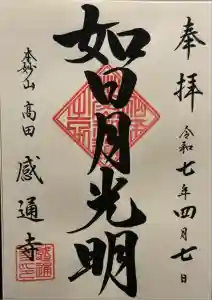 奉拝
令和七年四月七日
如日月光明
本妙山高田感通寺